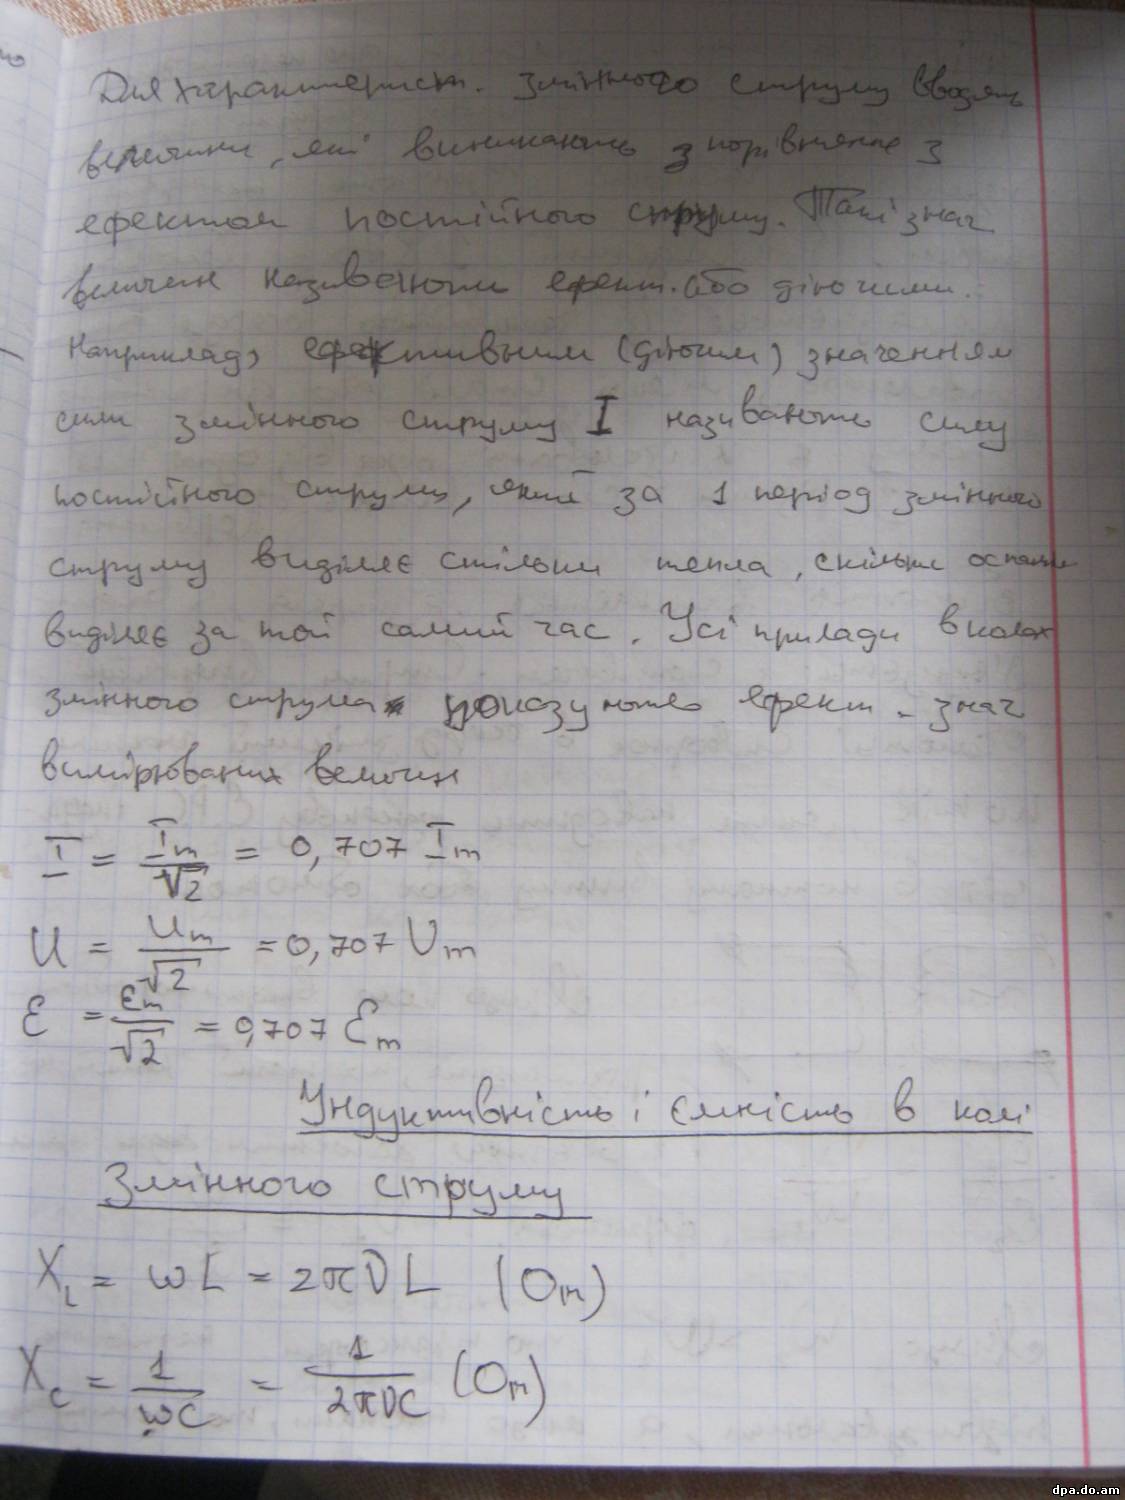 Для характерист. змінного струму вводять
величини, які виникають з порівняння з
ефектом постійного струму. Такі знач
величин називають ефект. або діючими.
Наприклад, ефективним (діючим) значенням
сили змінного струму I називають силу
постійного струму, який за 1 період змінного
струму виділяє стільки тепла, скільки останн
виділяє за той самий час. Усі прилади в колах
змінного струма показують ефект. знач
вимірюваних величин
I = Im/√2 = 0,707 Im
U = Um/√2 = 0,707 Um
ℰ = ℰm/√2 = 0,707 ℰm
Індуктивність і ємність в колі
Змінного струму
XL = ωL = 2πνL (Ом)
Xc = 1/ωC = 1/2πνC (Ом)
dpa.do.am